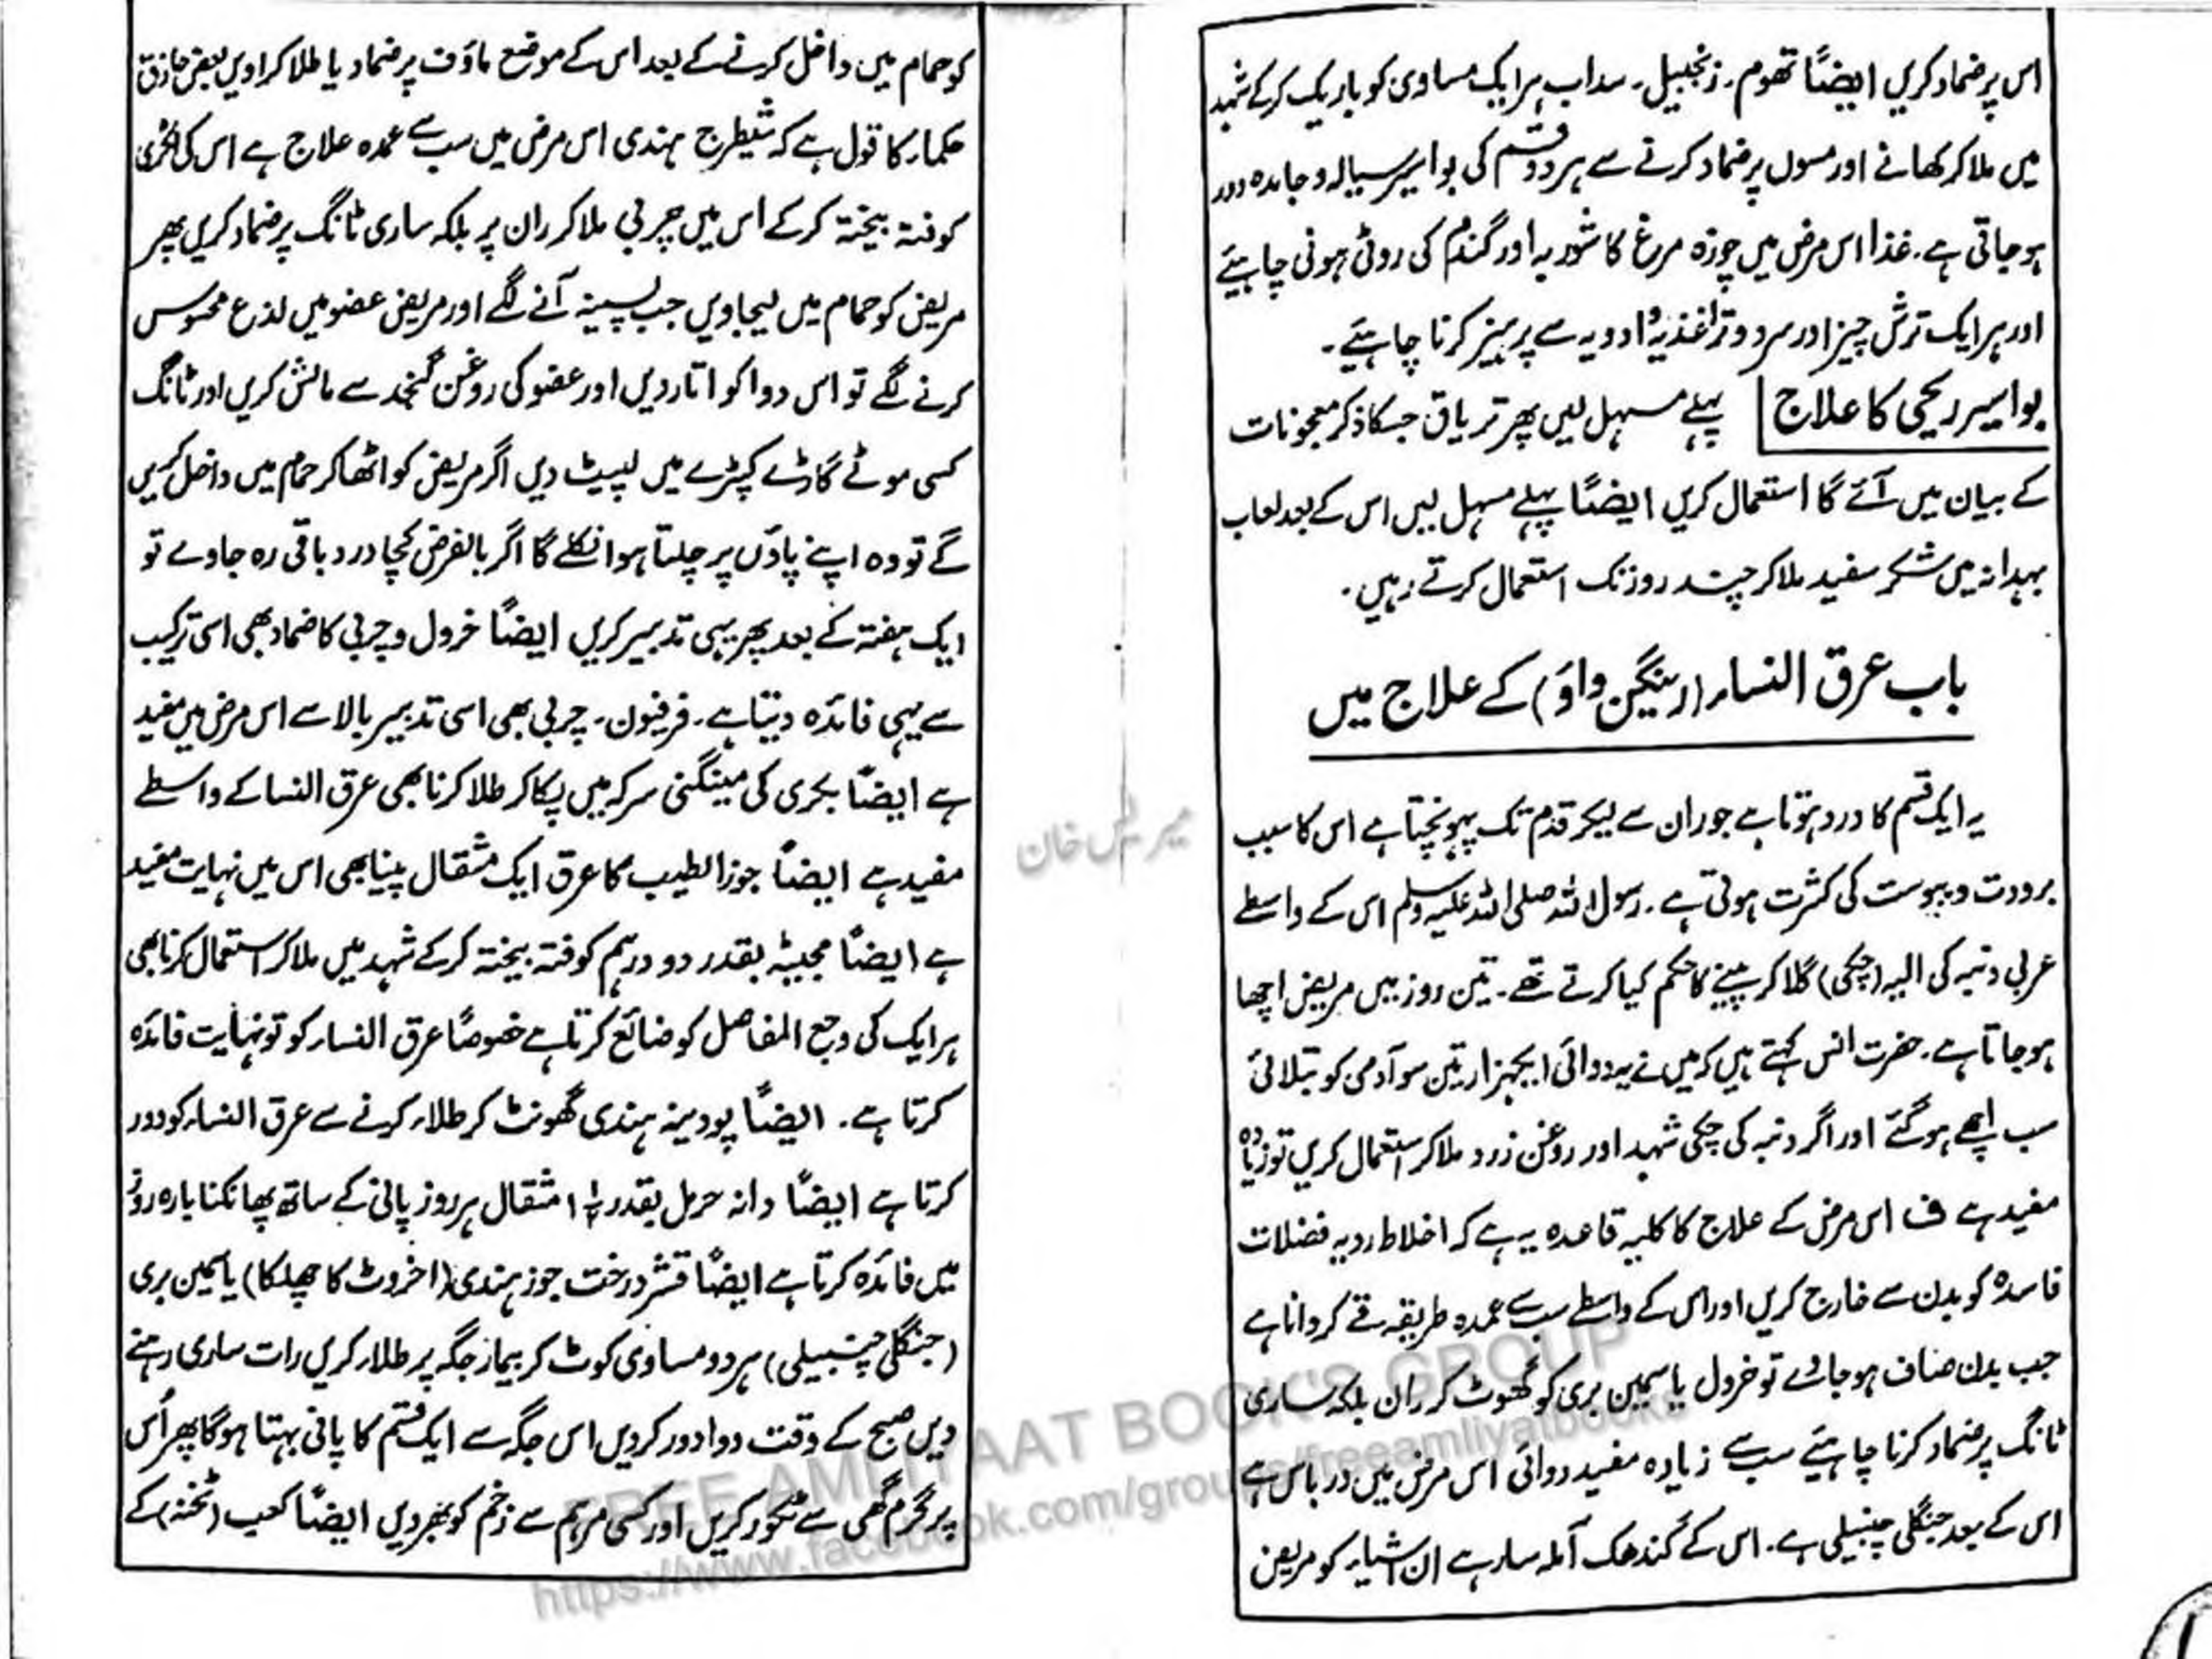 اس پر ضماد کریں ایضاً تھوم۔ زنجبیل۔ سداب ہر ایک مساوی کو باریک کرکے شہد
میں ملا کر کھانے اور مسوں پر ضماد کرنے سے ہر دو قسم کی بواسیر سیالہ و جامدہ دور
ہوجاتی ہے۔ غذا اس مرض میں چوزہ مرغ کا شوربہ اور گندم کی روٹی ہونی چاہیئے
اور ہر ایک ترش چیز اور سرد و تر اغذیہ و ادویہ سے پرہیز کرنا چاہیئے۔
بواسیر ریحی کا علاج پہلے مسہل لیں پھر تریاق جسکا ذکر معجونات
کے بیان میں آئے گا استعمال کریں ایضاً پہلے مسہل لیں اس کے بعد لعاب
بہدانہ میں شکر سفید ملا کر چند روز تک استعمال کرتے رہیں۔
باب عرق النساء (رینگن واؤ) کے علاج میں
یہ ایک قسم کا درد ہوتا ہے جو ران سے لیکر قدم تک پہونچتا ہے اس کا سبب
برودت و یبوست کی کثرت ہوتی ہے۔ رسول اللہ صلی اللہ علیہ وسلم اس کے واسطے
عربی دنبہ کی الیہ (چکی) گلا کر پینے کا حکم کیا کرتے تھے۔ تین روز میں مریض اچھا
ہوجاتا ہے۔ حضرت انس کہتے ہیں کہ میں نے یہ دوائی ایکہزار تین سو آدمی کو بتلائی
سب اچھے ہوگئے اور اگر دنبہ کی چکی شہد اور روغن زرد ملا کر استعمال کریں تو زیادہ
مفید ہے ف اس مرض کے علاج کا کلیہ قاعدہ یہ ہے کہ اخلاط ردیہ فضلات
فاسدہ کو بدن سے خارج کریں اور اس کے واسطے سب سے عمدہ طریقہ قے کروانا ہے
جب بدن صاف ہو جائے تو خرول یا سمین بری کو گھوٹ کر ران بلکہ ساری
ٹانگ پر ضماد کرنا چاہیئے سب سے زیادہ مفید دوائی اس مرض میں در باس ہے
اس کے بعد جنگلی چنبیلی ہے۔ اس کے گندھک آملہ سار ہے ان اشیاء کو مریض
کو حمام میں داخل کرنے کے بعد اس کے موضع ماؤف پر ضماد یا طلا کراویں بعض حاذق
حکماء کا قول ہے کہ شیطرج ہندی اس مرض میں سب سے عمدہ علاج ہے اس کی لکڑی
کوفتہ بیختہ کرکے اس میں چربی ملا کر ران پر بلکہ ساری ٹانگ پر ضماد کریں پھر
مریض کو حمام میں لیجاویں جب پسینہ آنے لگے اور مریض عضو میں لذع محسوس
کرنے لگے تو اس دوا کو اتار دیں اور عضو کی روغن کنجد سے مالش کریں اور ٹانگ
کسی موٹے گاڑے کپڑے میں لپیٹ دیں اگر مریض کو اٹھا کر حمام میں داخل کریں
گے تو وہ اپنے پاؤں پر چلتا ہوا نکلے گا اگر بالفرض کچا درد باقی رہ جاوے تو
ایک ہفتہ کے بعد پھر یہی تدبیر کریں ایضاً خرول و چربی کا ضماد بھی اسی ترکیب
سے یہی فائدہ دیتا ہے۔ فرفیون۔ چربی بھی اسی تدبیر بالا سے اس مرض میں مفید
ہے ایضاً بکری کی مینگنی سرکہ میں پکا کر طلا کرنا بھی عرق النسا کے واسطے
مفید ہے ایضاً جوز الطیب کا عرق ایک مثقال پینا بھی اس میں نہایت مفید
ہے ایضاً مجیٹہ بقدر دو درہم کوفتہ بیختہ کرکے شہد میں ملا کر استعمال کرنا بھی
ہر ایک کی وجع المفاصل کو ضائع کرتا ہے خصوصاً عرق النساء کو تو نہایت فائدہ
کرتا ہے۔ ایضاً پودینہ ہندی گھونٹ کر طلاء کرنے سے عرق النساء کو دور
کرتا ہے ایضاً دانہ حرمل بقدر ۱½ مثقال ہر روز پانی کے ساتھ پھانکنا بارہ روز
میں فائدہ کرتا ہے ایضاً قشر درخت جوز ہندی (اخروٹ کا چھلکا) یاسمین بری
(جنگلی چنبیلی) ہر دو مساوی کوٹ کر بیمار جگہ پر طلاء کریں رات ساری رہنے
دیں صبح کے وقت دوا دور کردیں اس جگہ سے ایک قسم کا پانی بہتا ہوگا پھر اُس
پر گرم گھی سے ٹکور کریں اور کسی مرہم سے زخم کو بھر دیں ایضاً کعب (ٹخنہ) کے
FREE AMLIYAAT BOOK'S GROUP
https://www.facebook.com/groups/freeamliyatbooks